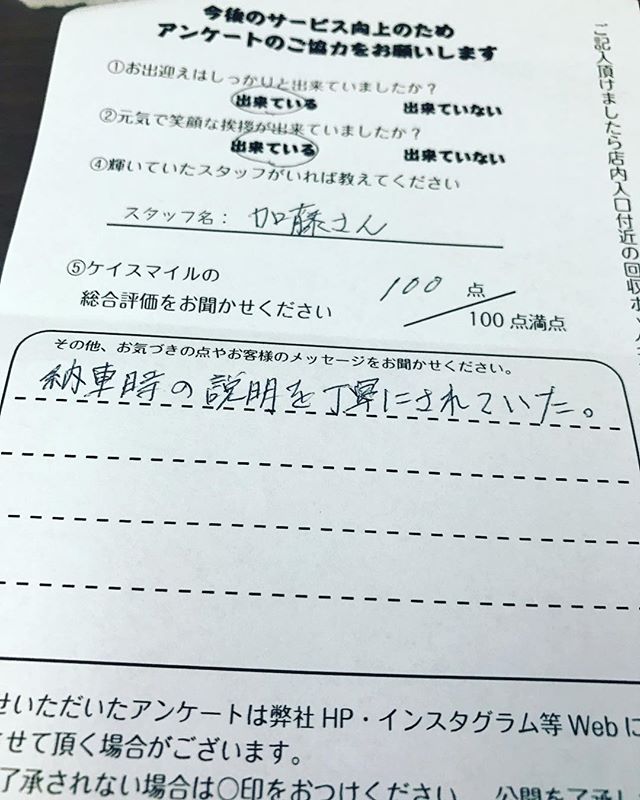 今後のサービス向上のため
アンケートのご協力をお願いします
①お出迎えはしっかりと出来ていましたか？
出来ている 出来ていない
②元気で笑顔な挨拶が出来ていましたか？
出来ている 出来ていない
④輝いていたスタッフがいれば教えてください
スタッフ名： 加藤さん
⑤ケイスマイルの
総合評価をお聞かせください
100 点
100点満点
その他、お気づきの点やお客様のメッセージをお聞かせください。
納車時の説明を丁寧にされていた。
せいただいたアンケートは弊社HP・インスタグラム等Webに
させて頂く場合がございます。
了承されない場合は○印をおつけください 公開を了承し
ご記入頂けましたら店内入口付近の回収ボックス